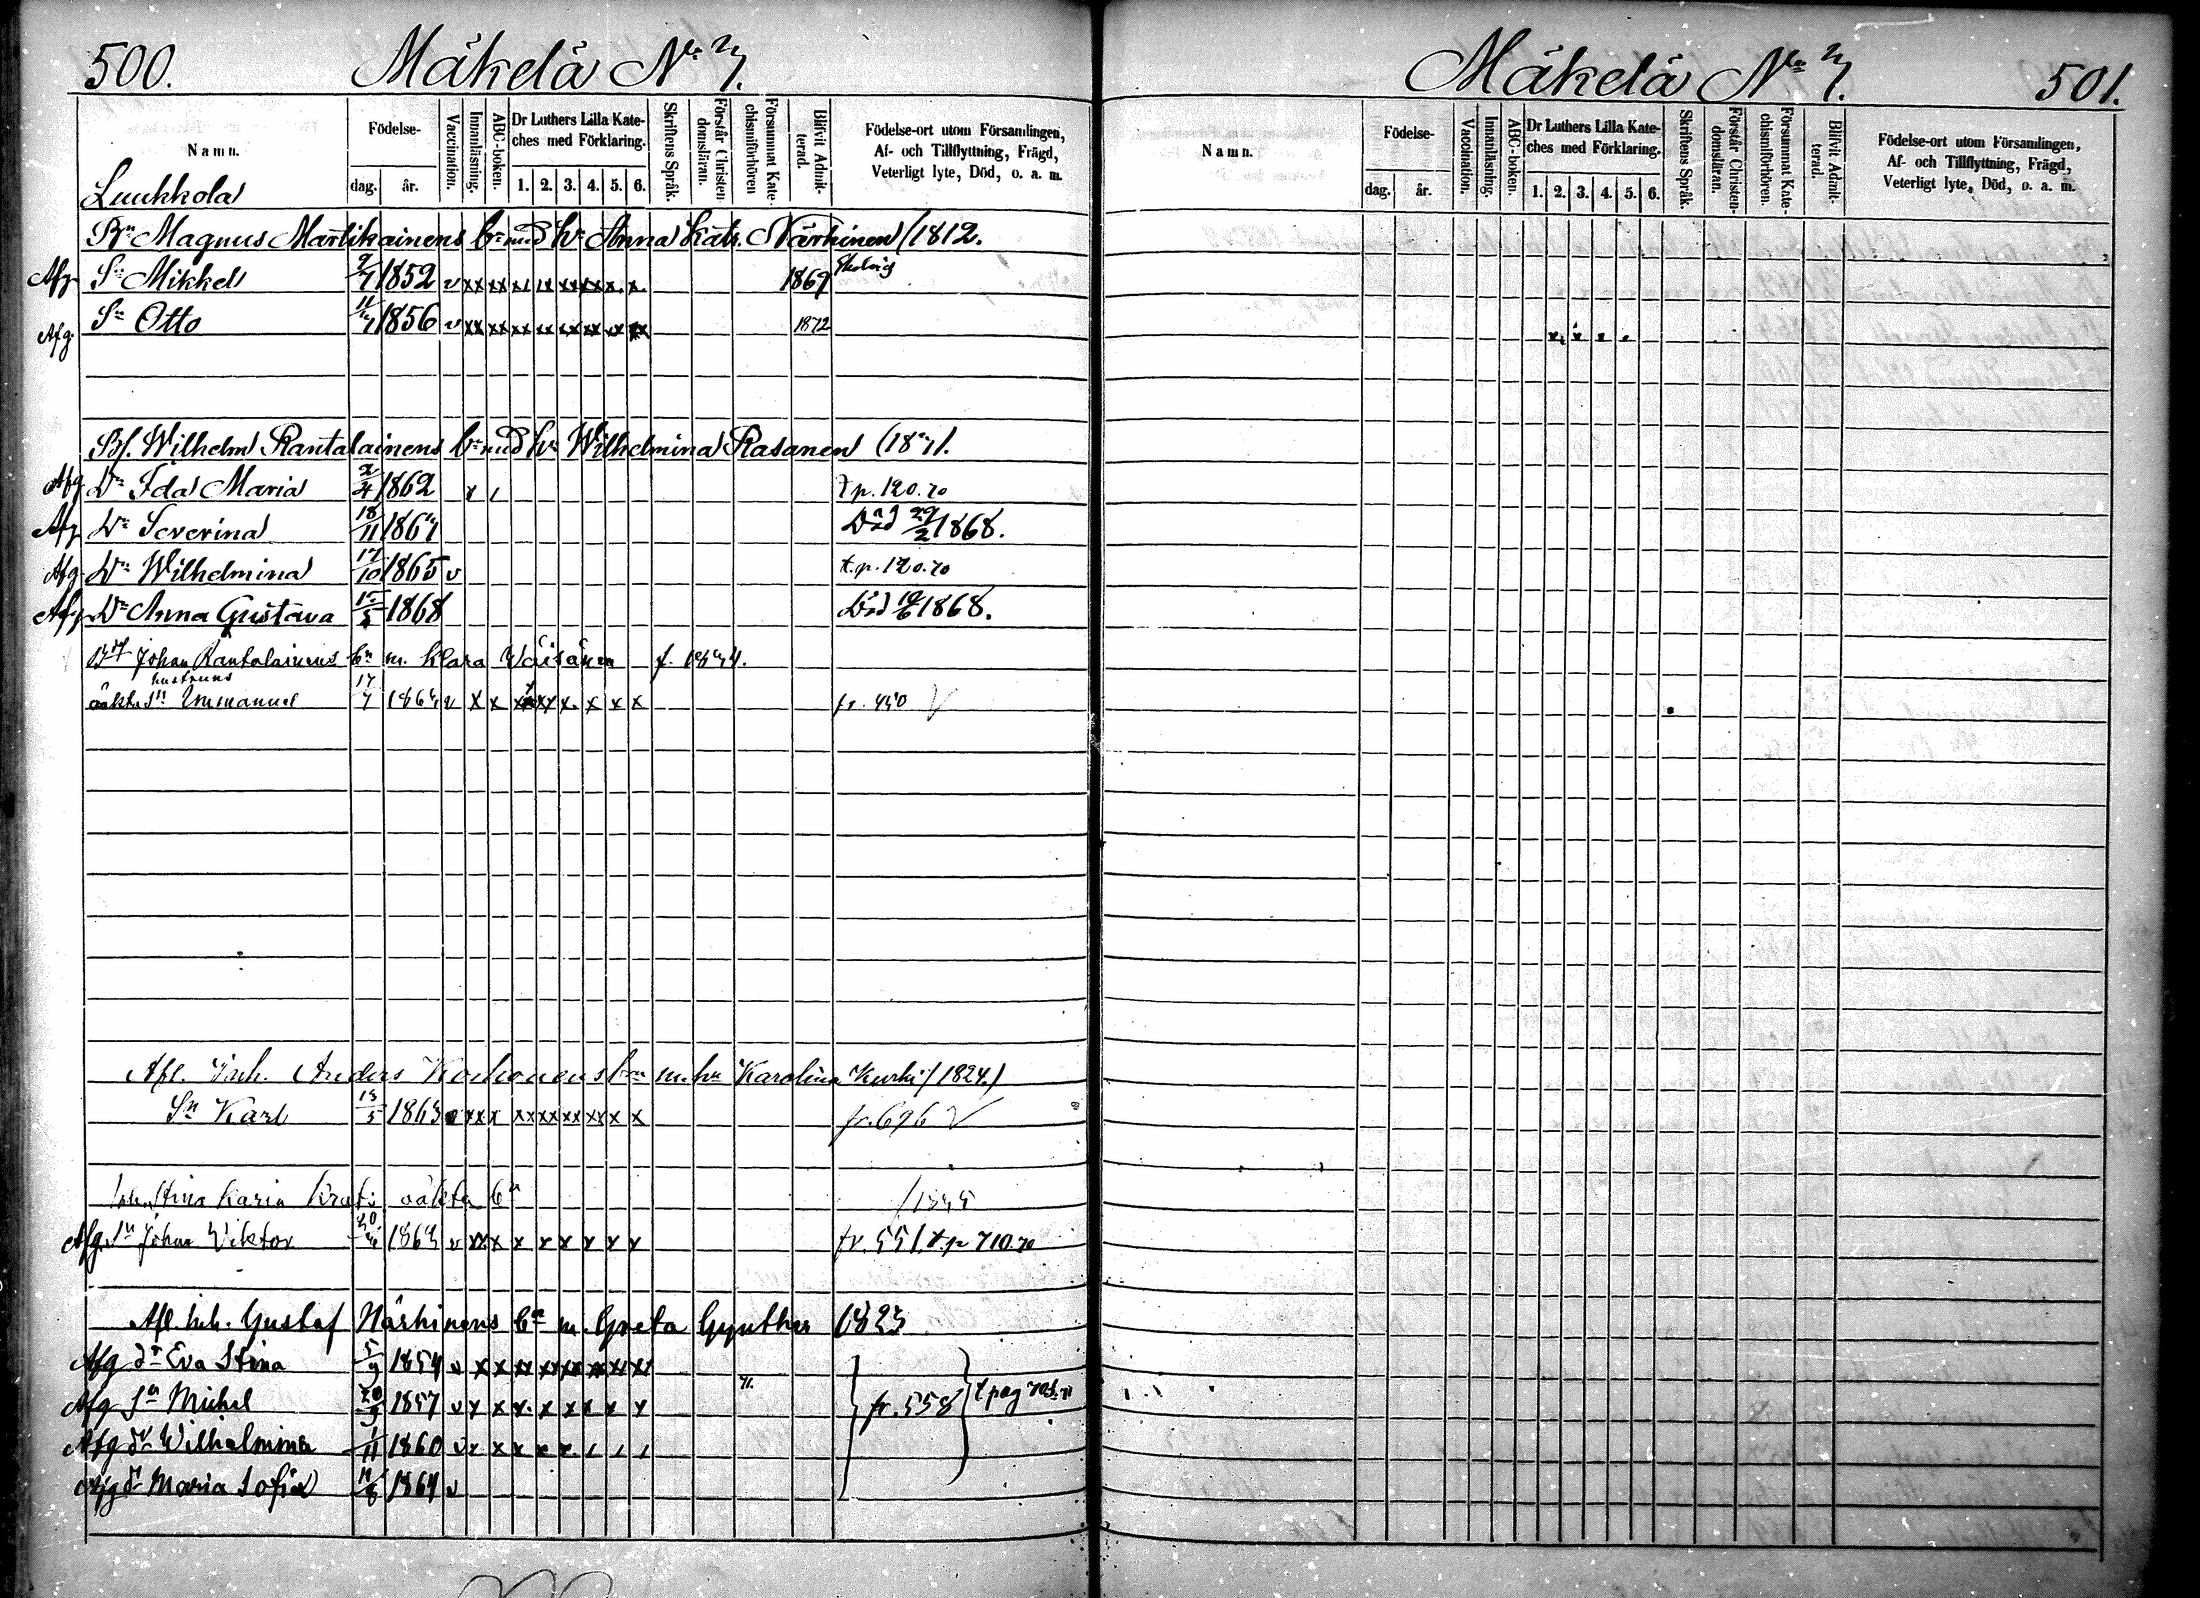 500. Mäkelä No 7.
Namn.
Födelse-
dag. år.
Vaccination.
Innanläsning.
ABC-boken.
Dr Luthers Lilla Kate-
ches med Förklaring.
1. 2. 3. 4. 5. 6.
Skriftens Språk.
Förstår Christen-
domsläran.
Försummat Kate-
chismiförhören
Blifvit Admit-
terad.
Födelse-ort utom Församlingen,
Af- och Tillflyttning, Frägd,
Veterligt lyte, Död, o. a. m.
Luukkola
Bn Magnus Martikainens bn med hu Anna Katr. Närhinen (1812.
Afg Sn Mikkel 2/7 1852 v xx xx xx xx xx xx x. x. 1869
Afg. Sn Otto 11/7 1856 v xx xx xx xx xx xx xx xx 1872
Bf. Wilhelm Rantalainens bn med hu Wilhelmina Rasanen (1871.
Afg Dr Ida Maria 2/4 1862 x t p. 120.70
Afg Dr Severina 18/11 1867 Död 29/2 1868.
Afg Dr Wilhelmina 17/10 1865 v t.p. 120.70
Afg Dr Anna Gustava 15/5 1868 Död 1868.
Johan Rantalainens bn m. Klara Väisänen f.
hustruns
oäkta Sn Emmanuel 17/7 v x x x x x x x fr. 440 V
Afl. Inh. Anders Korhonens bn m. hu Karolina Kurki (1824.)
Sn Karl 13/5 1863 xx x xx xx xx xx x x fr. 696 V
Stina Karin oäkta bn
Afg. Sn Johan Viktor v xx x x x x x x x fr. 551 t.p 710.70
Afl. Inh. Gustaf Närhinens bn m. Greta Gynther (1823
Afg dr Eva Stina 5/9 1854 v x x xx xx xx xx xx xx
Afg Sn Michel 1857 v x x x. x x x x x 71. fr. 558 t pag
Afg dr Wilhelmina 1/11 1860 v x x x x x.
Afg dr Maria Sofia 1864 v
Mäkelä No 7. 501.
Namn.
Födelse-
dag. år.
Vaccination.
Innanläsning.
ABC-boken.
Dr Luthers Lilla Kate-
ches med Förklaring.
1. 2. 3. 4. 5. 6.
Skriftens Språk.
Förstår Christen-
domsläran.
Försummat Kate-
chismiförhören.
Blifvit Admit-
terad.
Födelse-ort utom Församlingen,
Af- och Tillflyttning, Frägd,
Veterligt lyte, Död, o. a. m.